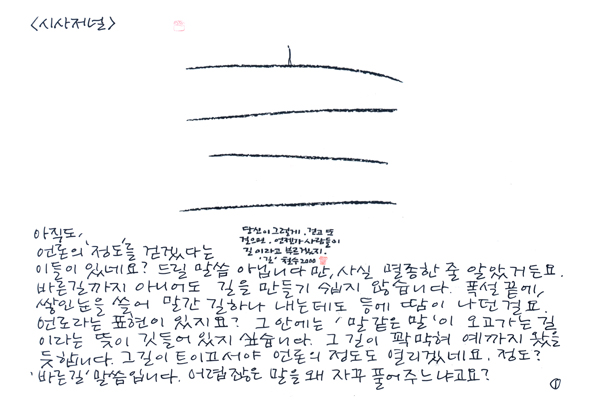 <시사저널>
당신이 그렇게. 걷고 또
걸으면. 언젠가 사람들이
길이라고 부르겠지.
'길' 철수 2000
아직도,
언론의 '정도'를 걷겠다는
이들이 있네요? 드릴 말씀 아닙니다만, 사실 멸종한 줄 알았거든요.
바른길까지 아니어도 길을 만들기 쉽지 않습니다. 폭설 끝에,
쌓인눈을 쓸어 말간 길하나 내는데도 등에 땀이 나던 걸요.
언로라는 표현이 있지요? 그 안에는 '말 같은 말'이 오고가는 길
이라는 뜻이 깃들어 있지 싶습니다. 그 길이 꽉 막혀 예까지 왔을
듯합니다. 그길이 트이고서야 언론의 정도도 열리겠네요. 정도?
'바른길' 말씀입니다. 어렵잖은 말을 왜 자꾸 풀어주느냐고요?
①